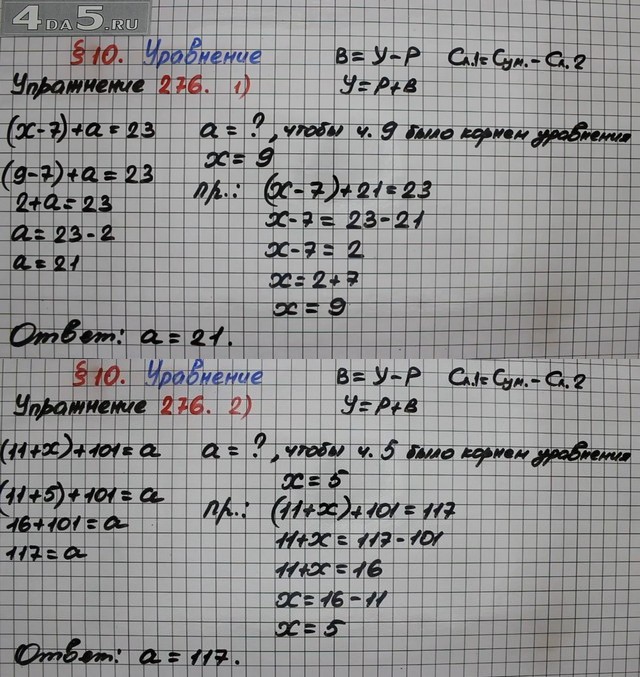 4DA5.RU
§10. Уравнение В=У-Р Сл.1=Сум.-Сл.2
Упражнение 276. 1) У=Р+В
(x-7)+a=23 a=?, чтобы ч. 9 было корнем уравнения
x=9
(9-7)+a=23 пр.: (x-7)+21=23
2+a=23 x-7=23-21
a=23-2 x-7=2
a=21 x=2+7
x=9
Ответ: a=21.
§10. Уравнение В=У-Р Сл.1=Сум.-Сл.2
Упражнение 276. 2) У=Р+В
(11+x)+101=a a=?, чтобы ч. 5 было корнем уравнения
x=5
(11+5)+101=a пр.: (11+x)+101=117
16+101=a 11+x=117-101
117=a 11+x=16
x=16-11
x=5
Ответ: a=117.